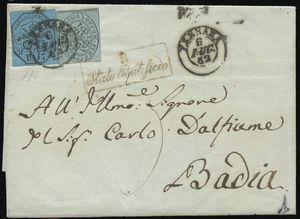 FERRARA
6
62
Stato Pontificio
All' Illmo. Signore
Il Sig. Carlo Dalfiume
Badia